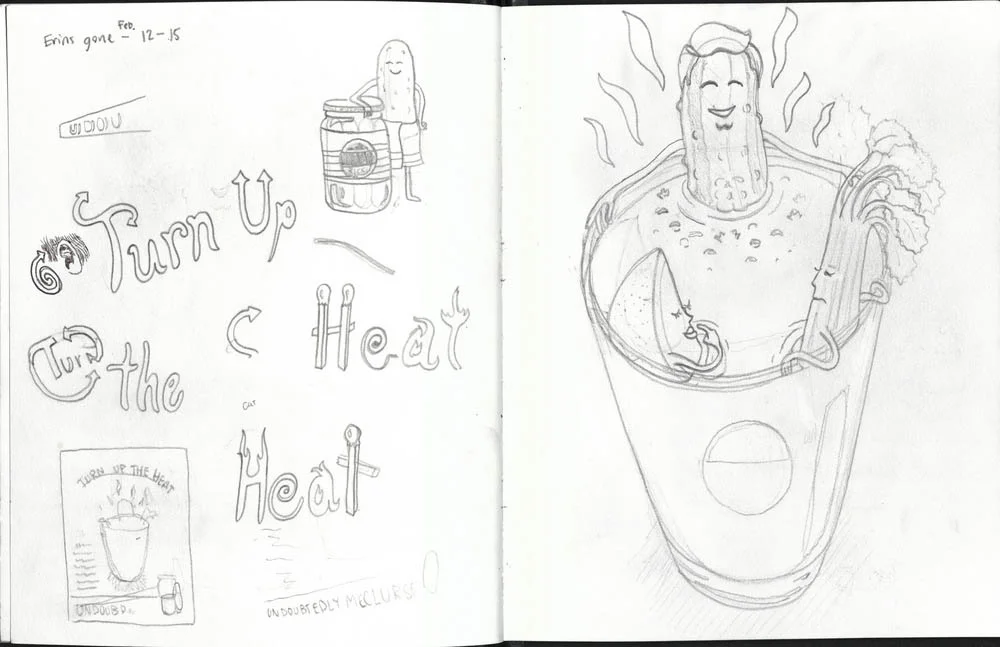 Erins gone – Feb. 12–15
Turn Up
Turn
the
Heat
Heat
TURN UP THE HEAT
UNDOUBTEDLY MCCLURES